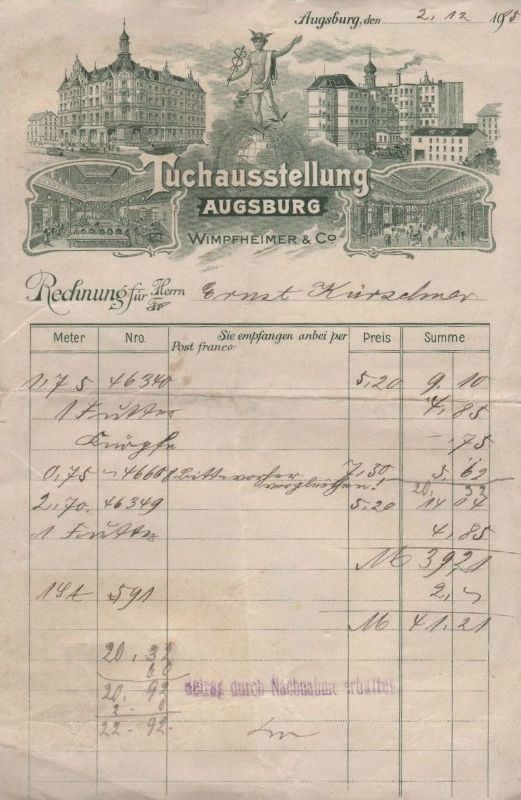 Augsburg, den 2. 12 1905
Tuchausstellung
AUGSBURG
WIMPFHEIMER & Co
Rechnung für Herrn Ernst Kürschner
Fr
Meter Nro. Sie empfangen anbei per Post franco: Preis Summe
1,75 46340 5,20 9.10
1 Futter 4,85
Knöpfe -,75
0,75 46608 Bitte vorher vergleichen! 7,50 5.62
20, 32
2,70. 46349 5.20 14 04
1 Futter 4,85
M 39 21
1 St 591 2,-
M 41.21
20, 32
60
20, 92
2 - 0
22 - 92.
Betrag durch Nachnahme erhalten